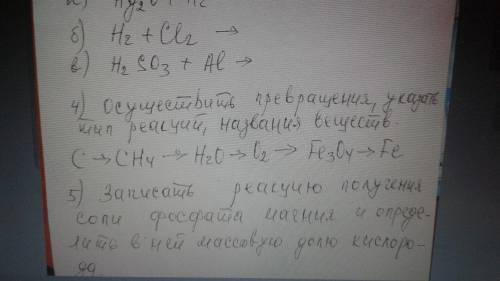 а) Hg2O + H2
б) H2 + Cl2 →
в) H2SO3 + Al →
4) Осуществить превращения, указать
тип реакций, названия веществ.
C → CH4 → H2O → O2 → Fe3O4 → Fe
5) Записать реакцию получения
соли фосфата магния и опреде-
лить в ней массовую долю кислоро-
да.